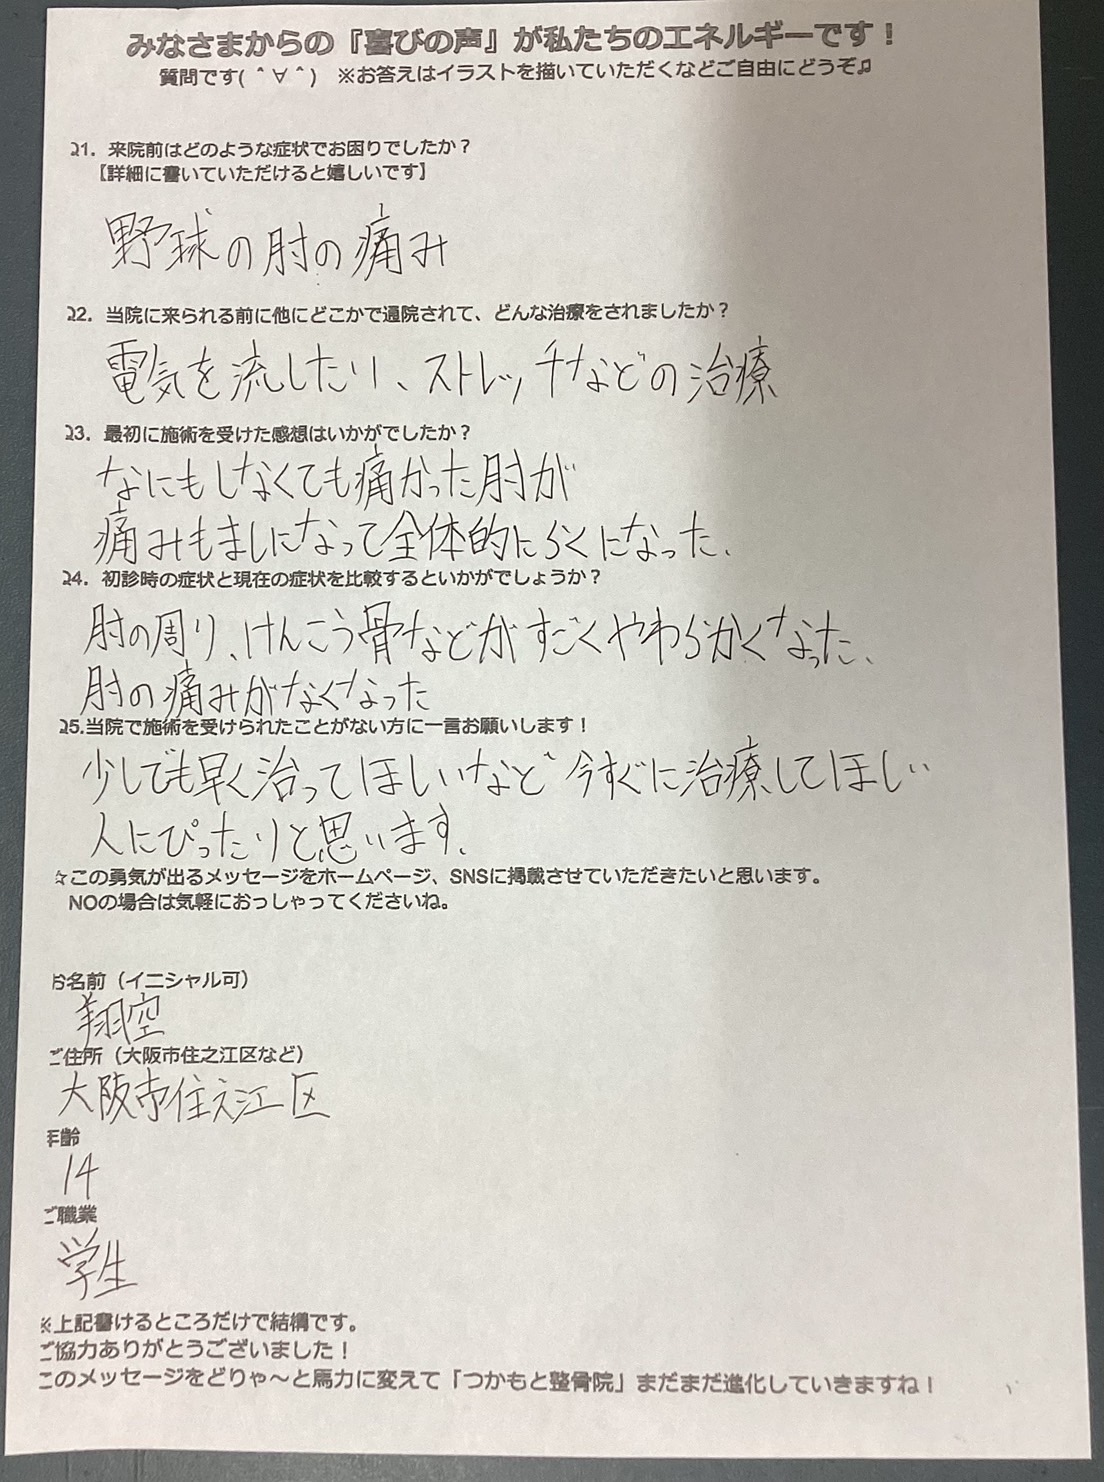 みなさまからの『喜びの声』が私たちのエネルギーです！
質問です(＾∀＾)　※お答えはイラストを描いていただくなどご自由にどうぞ♫
Q1. 来院前はどのような症状でお困りでしたか？
【詳細に書いていただけると嬉しいです】
野球の肘の痛み
Q2. 当院に来られる前に他にどこかで通院されて、どんな治療をされましたか？
電気を流したり、ストレッチなどの治療
Q3. 最初に施術を受けた感想はいかがでしたか？
なにもしなくても痛かった肘が
痛みもましになって全体的にらくになった、
Q4. 初診時の症状と現在の症状を比較するといかがでしょうか？
肘の周り、けんこう骨などがすごくやわらかくなった、
肘の痛みがなくなった
Q5.当院で施術を受けられたことがない方に一言お願いします！
少しでも早く治ってほしいなど今すぐに治療してほしい
人にぴったりと思います、
☆この勇気が出るメッセージをホームページ、SNSに掲載させていただきたいと思います。
NOの場合は気軽におっしゃってくださいね。
お名前（イニシャル可）
翔空
ご住所（大阪市住之江区など）
大阪市住之江区
年齢
14
ご職業
学生
※上記書けるところだけで結構です。
ご協力ありがとうございました！
このメッセージをどりゃ〜と馬力に変えて「つかもと整骨院」まだまだ進化していきますね！